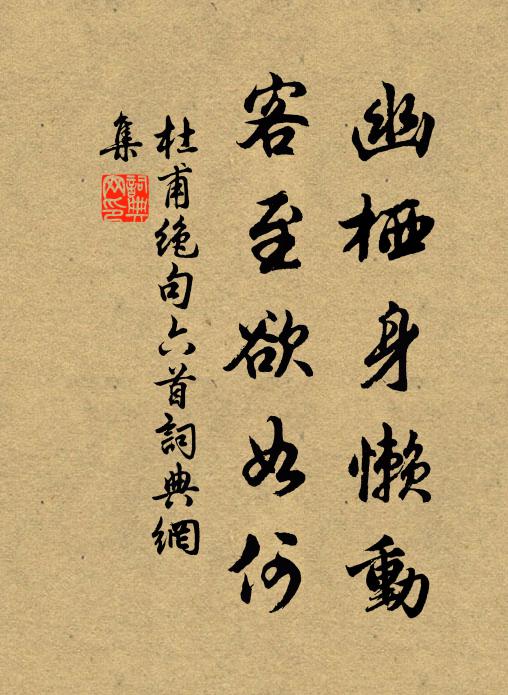 幽栖身懶動
客至欲如何
杜甫絶句六首詞典網
集
詞典
网印